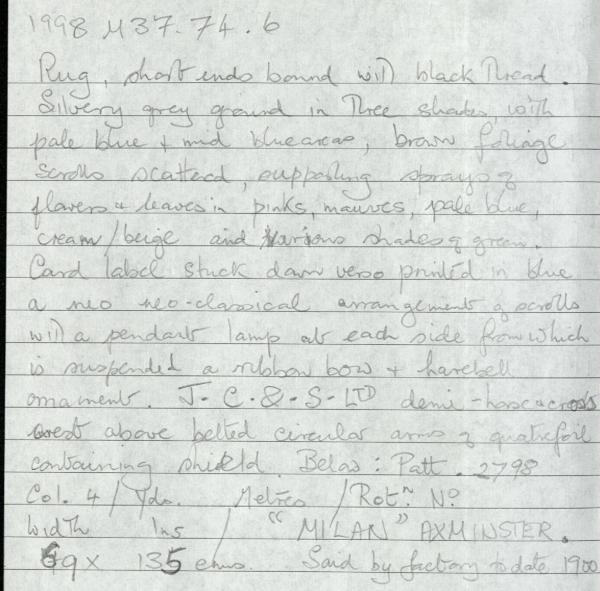 1998 M37.74.6
Rug, short ends bound with black thread.
Silvery grey ground in three shades, with
pale blue + mid blue areas, brown foliage
scrolls scattered, supporting sprays of
flowers + leaves in pinks, mauves, pale blue,
cream/beige and various shades of green.
Card label stuck down verso printed in blue
a neo neo-classical arrangement of scrolls
with a pendant lamp at each side from which
is suspended a ribbon bow + harebell
ornament. J-C.&-S-LTD demi-horse across
crest above belted circular arms of quatrefoil
containing shield. Below: Patt. 2798
Col. 4/Yds. Metres /Rotn. No
Width Ins / "MILAN" AXMINSTER.
69 x 135 cms. Said by factory to date 1900